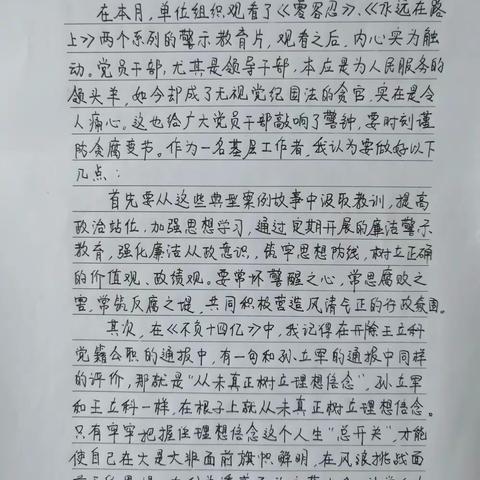 在本月，单位组织观看了《零容忍》、《永远在路
上》两个系列的警示教育片，观看之后，内心实为触
动。党员干部，尤其是领导干部，本应是为人民服务的
领头羊，如今却成了无视党纪国法的贪官，实在是令
人痛心。这也给广大党员干部敲响了警钟，要时刻谨
防贪腐变节。作为一名基层工作者，我认为要做好以下
几点：
首先要从这些典型案例故事中汲取教训，提高
政治站位，加强思想学习，通过定期开展的廉洁警示
教育，强化廉洁从政意识，筑牢思想防线，树立正确
的价值观、政绩观。要常怀警醒之心，常思腐败之
害，常筑反腐之堤，共同积极营造风清气正的行政氛围。
其次，在《不负十四亿》中，我记得在开除王立科
党籍公职的通报中，有一句和孙立军的通报中同样
的评价，那就是“从未真正树立理想信念”，孙立军
和王立科一样，在根子上就从未真正树立理想信念。
只有牢牢把握住理想信念这个人生“总开关”，才能
使自己在大是大非面前旗帜鲜明，在风浪挑战面